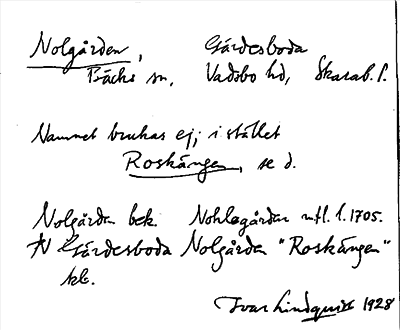 Nolgården, Gärdesboda
Bäcks sn, Vadsbo hd, Skarab. l.
Namnet brukas ej; i stället
Roskängen, se d.
Nolgården bek. Nohlegården mtl. l. 1705.
N Gärdesboda Nolgården "Roskängen"
kl.
Ivar Lindquist 1928